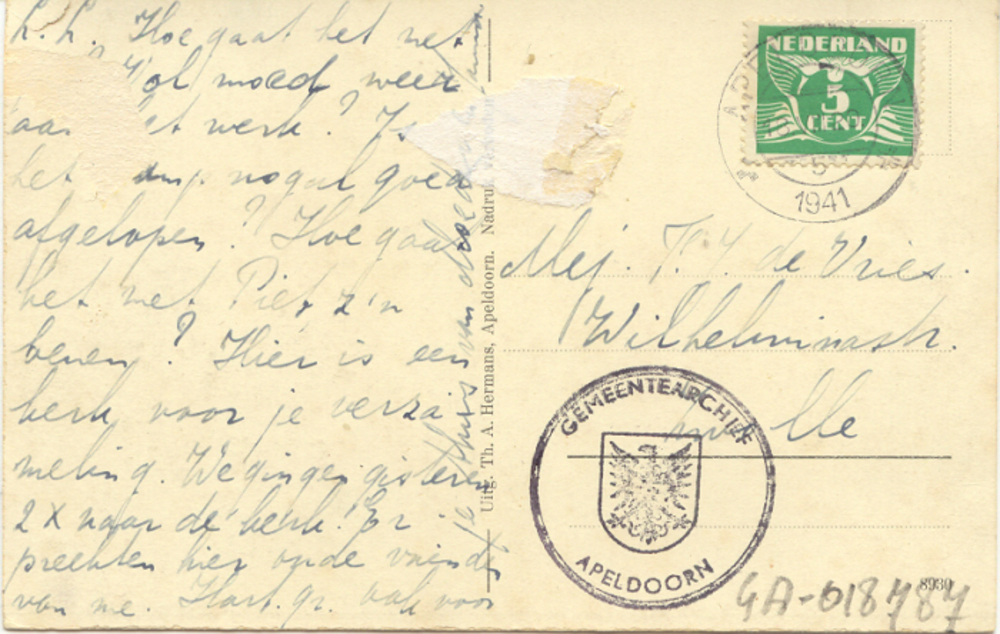 L.L. Hoe gaat het met
Vol moed weer
aan het werk? Is
het nogal goed
afgelopen? Hoe gaat
het met Piet z'n
benen? Hier is een
kerk voor je verza
meling. We gingen gisteren
2x naar de kerk. Er
preekten hier oude vrienden
van me. Hart. gr. ook voor
je thuis van
Uitg. Th. A. Hermans, Apeldoorn. Nadruk
NEDERLAND
5
CENT
1941
Mej. T. Y. de Vries.
Wilhelminastr.
GEMEENTEARCHIEF
APELDOORN
8930
GA-018787